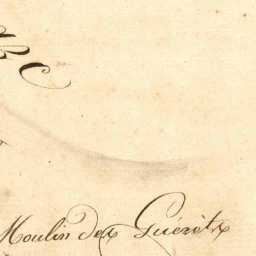 Moulin des Guérets